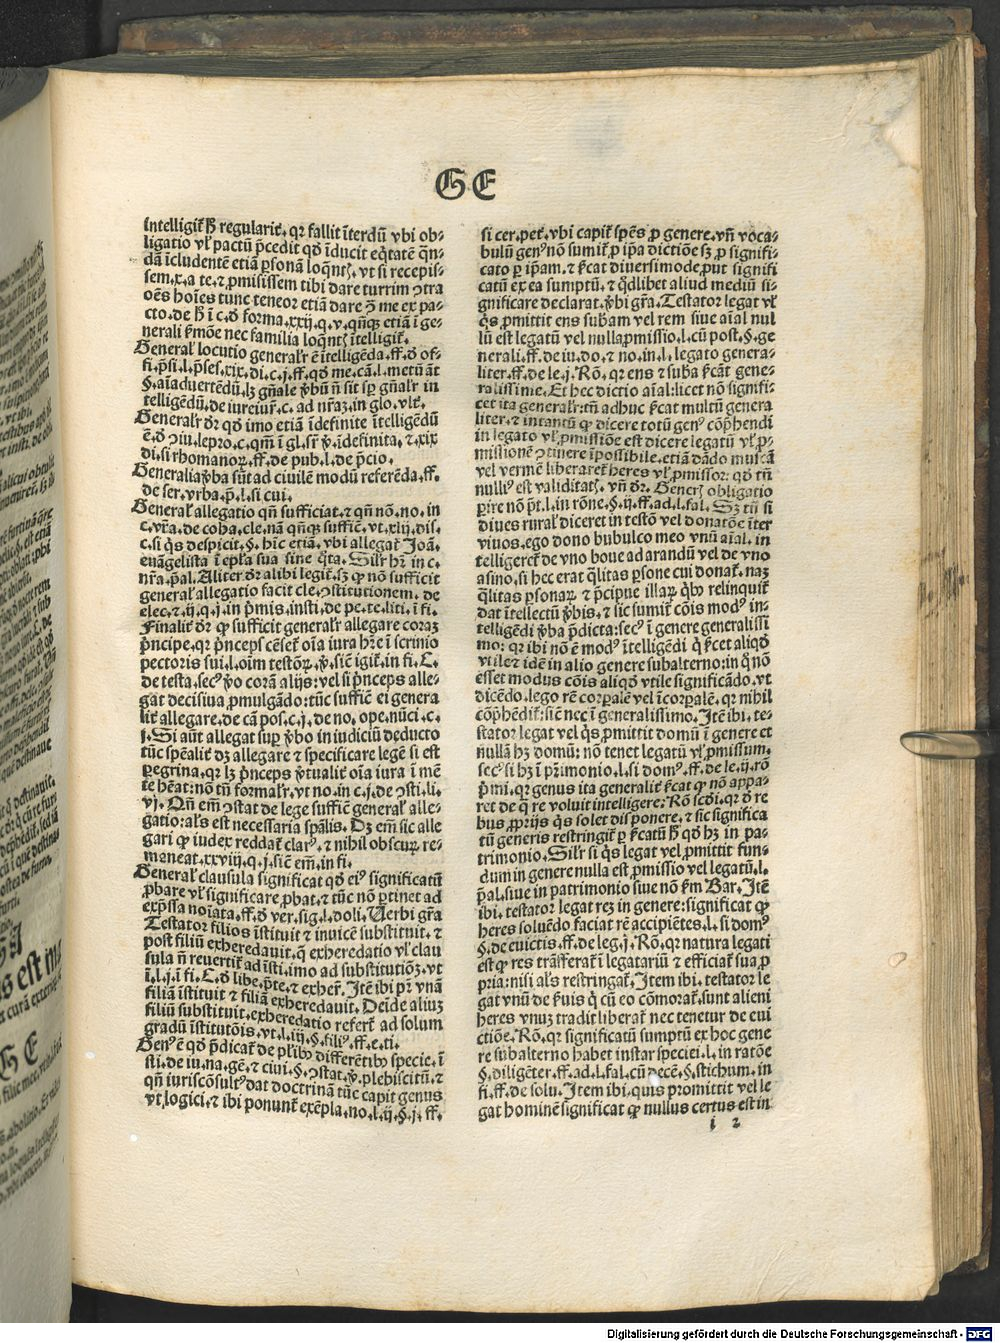 GE
intelligit᷒ hͦ regularit᷒. qr fallit ĩterdũ vbi ob⸗
ligatio vl᷒ pactũ p̃cedit qd̕ ĩducit eq̃tatẽ q̃n⸗
dã ĩcludentẽ etiã ꝑsonã loq̃nt᷒. vt si recepis⸗
sem.x.a te.⁊ ꝓmisissem tibi dare turrim ↄtra
oẽs hoĩes tunc teneoꝛ etiã dare ꝯ̃ me ex pa⸗
cto.de hͦ ĩ c.d̕ forma.xxij.q.v.qñqꝫ etiã ĩ ge⸗
nerali k̃mõe nec familia loq̃nt᷒ ĩtelligit᷒.
General᷒ locutio general᷒r ẽ ĩtelligẽda.ff.d̕ of⸗
fi.p̃si.l.p̃ses.xix.di.c.j.ff.qd̕ me.cã.l.metũ aũt
§.aĩaduertẽdũ.lꝫ gñale v̕bũ ñ sit sꝑ gñal᷒r in
telligẽdũ.de iureiur᷒.c. ad nr̃aꝫ.in glo.vlt᷒.
General᷒r dr̃ qd̕ imo etiã ĩdefinite ĩtelligẽdũ
ẽ.d̕ ↄiu.lepro.c.qm̃ ĩ gl.sr̃ v̕.ĩdefinita.⁊.xix
di.si rhomanoꝝ.ff.de pub.l.de p̃cio.
Generalia v̕ba sũt ad ciuilẽ modũ referẽda.ff.
de ser.vrba.p̃.l.si cui.
General᷒ allegatio qñ sufficiat.⁊ qñ nõ.no.in
c.vr̃a.de coha.cle.nã qñqꝫ suffic̃.vt.xlij.dis.
c.si q̃s despicit.§.hĩc etiã.vbi allegat᷒ Joã.
euãgelista ĩ epl̃a sua sine q̃ta.Sil᷒r hr̃ in c.
nr̃a.p̃al.Aliter dr̃ alibi legit᷒.sꝫ ꝙ nõ sufficit
general᷒ allegatio facit cle.ↄstitutionem.de
elec.⁊ ij.q.j.in p̃mis.insti.de pe.te.liti.ĩ fi.
Finalit᷒ dr̃ ꝙ sufficit general᷒r allegare coraꝫ
p̃ncipe.qr p̃nceps cẽset᷒ oĩa iura hr̃e ĩ scrinio
pectoris sui.l.oĩm testõꝝ.v̕.sic̃ igit᷒.in fi.C.
de testa.sec᷒ v̕o corã alijs:vel si p̃nceps alle⸗
gat decisiua ꝓmulgãdo:tũc suffic̃ ei genera
lit᷒ allegare.de cã pos.c.j.de no.ope.nũci.c.
j.Si aũt allegat suꝑ v̕bo in iudiciũ deducto
tũc sp̃ealit᷒ dꝫ allegare ⁊ specificare legẽ si est
ꝑegrina.qr lꝫ p̃nceps v̕tualit᷒ oĩa iura ĩ mẽ
te heat:nõ tñ formal᷒r.vt no.in c.j.de ↄsti.li.
vj. Qñ em̃ ↄstat de lege suffic̃ general᷒ alle⸗
gatio:al᷒s est necessaria sp̃alis. Dꝫ em̃ sic alle
gari ꝙ iudex reddat᷒ clar᷒.⁊ nihil obscuꝝ re⸗
maneat.xxviij.q.j.sic̃ em̃.in fi.
General᷒ clausula significat qd̕ ei᷒ significatũ
ꝓbare vl᷒ significare ꝓbat.⁊ tũc nõ ꝑtinet ad
exp̃ssa noĩata.ff.d̕ ver.sig.l.doli.Uerbi gr̃a
Testator filios ĩstituit ⁊ inuicẽ substituit.⁊
post filiũ exheredauit.q̃ exheredatio vl᷒ clau
sula ñ reuertit᷒ ad ĩsti.imo ad substitutiõꝫ.vt
ĩ.l.j.ĩ fi.C.d̕ libe.p̃te.⁊ exher᷒.Itẽ ibi pr̃ vnã
filiã ĩstituit ⁊ filiã exheredauit. Deĩde aliuꝫ
filiũ substituit.exheredatio refert᷒ ad solum
gradũ ĩstitutõis.vt.l.iij.§.fili᷒.ff.e.ti.
Gen᷒ ẽ qd̕ p̃dicat᷒ de pl̃ibꝫ differẽtibꝫ specie.ĩ
sti.de iu.na.gẽ.⁊ ciui.§.ↄstat.v̕.plebiscitũ.⁊
qñ iuriscõsult᷒ dat doctrinã tũc capit genus
vt logici.⁊ ibi ponunt᷒ exẽpla.no.l.ij.§.j.ff.
si cer.pet᷒.vbi capit᷒ sp̃es ꝓ genere.vñ voca⸗
bulũ gen᷒ nõ sumit᷒ ꝓ ip̃a dictiõe sꝫ ꝓ signifi⸗
cato ꝑ ip̃am.⁊ k̃cat diuersimode.put signifi
catũ ex ea sumptũ.⁊ q̃dlibet aliud mediũ si⸗
gnificare declarat.v̕bi gr̃a.Testator legat vl᷒
q̃s ꝓmittit ens sub̃am vel rem siue aĩal nul
lũ est legatũ vel nulla ꝓmissio.l.cũ post.§.ge
nerali.ff.de iu.do.⁊ no.in.l.legato genera⸗
liter.ff.de le.j.Rõ.qr ens ⁊ sub̃a k̃cãt gene⸗
ralissime.Et hec dictio aĩal:licet nõ signifi⸗
cet ita general᷒r:tñ adhuc k̃cat multũ genera
liter.⁊ intantũ ꝙ dicere totũ gen᷒ cõp̃hendi
in legato vl᷒ ꝓmissiõe est dicere legatũ vl᷒ ꝓ⸗
missionẽ ↄtinere ĩpossibile.etiã dãdo muscã
vel vermẽ liberaret᷒ heres vl᷒ ꝓmissor:qd̕ tñ
nulli᷒ est validitat᷒.vñ dr̃.Gener᷒ obligatio
ꝑire nõ p̃t.l.in rõne.§.ij.ff.ad.l.fal. Sꝫ tñ si
diues rural᷒ diceret in testõ vel donatõe ĩter
viuos.ego dono bubulco meo vnũ aĩal.in
telligeret᷒ de vno boue ad arandũ vel de vno
asino.si hec erat q̃litas ꝑsone cui donat᷒.naꝫ
q̃litas ꝑsonaꝝ.⁊ p̃cipue illaꝝ qͥbꝫ relinquit᷒
dat ĩtellectũ v̕bis.⁊ sic sumit᷒ cõis mod᷒ in⸗
telligẽdi v̕ba p̃dicta:sec᷒ ĩ genere generalissi
mo: qr ibi nõ ẽ mod᷒ ĩtelligẽdi q̃ k̃cet aliqd̕
vtile ⁊ idẽ in alio genere subalterno:in q̃ nõ
esset modus cõis aliqd̕ vtile significãdo.vt
dicẽdo.lego rẽ corꝑalẽ vel ĩcorꝑalẽ.qr nihil
cõp̃hẽdit᷒:sic̃ nec ĩ generalissimo.Itẽ ibi.te⸗
stator legat vel q̃s ꝓmittit domũ ĩ genere et
nullã hꝫ domũ: nõ tenet legatũ vl᷒ ꝓmissum.
sec᷒ si hꝫ ĩ pr̃imonio.l.si dom᷒.ff.de le.ij.rõ
p̃mi.qr genus ita generalit᷒ k̃cat ꝙ nõ appa⸗
ret de q̃ re voluit intelligere:Rõ scd̕i.qr d̕ re
bus ꝓprijs q̃s solet disponere.⁊ sic significa
tũ generis restringit᷒ ꝑ k̃catũ hͦ qd̕ hꝫ in pa⸗
trimonio.Sil᷒r si q̃s legat vel ꝓmittit fun⸗
dum in genere nulla est ꝓmissio vel legatũ.l.
p̃al.siue in patrimonio siue nõ k̃m Bar.Itẽ
ibi.testator legat reꝫ in genere:significat ꝙ
heres soluẽdo faciat rẽ accipiẽtes.l.si dom᷒
§.de euictis.ff.de leg.j.Rõ.qr natura legati
est ꝙ res trãsferat᷒ ĩ legatariũ ⁊ efficiat᷒ sua ꝓ
pria:nisi al᷒s restringat᷒.Item ibi.testator le
gat vnũ de k̃uis q̃ cũ eo cõmorat᷒.sunt alieni
heres vnuꝫ tradit liberat᷒ nec tenetur de eui
ctiõe.Rõ.qr significatũ sumptũ ex hoc gene
re subalterno habet instar speciei.l.in ratõe
§.diligẽter.ff.ad.l.fal.cũ decẽ.§.stichum.in
fi.ff.de solu.Item ibi.quis promittit vel le
gat hominẽ significat ꝙ nullus certus est in
i 2
Digitalisierung gefördert durch die Deutsche Forschungsgemeinschaft - DFG